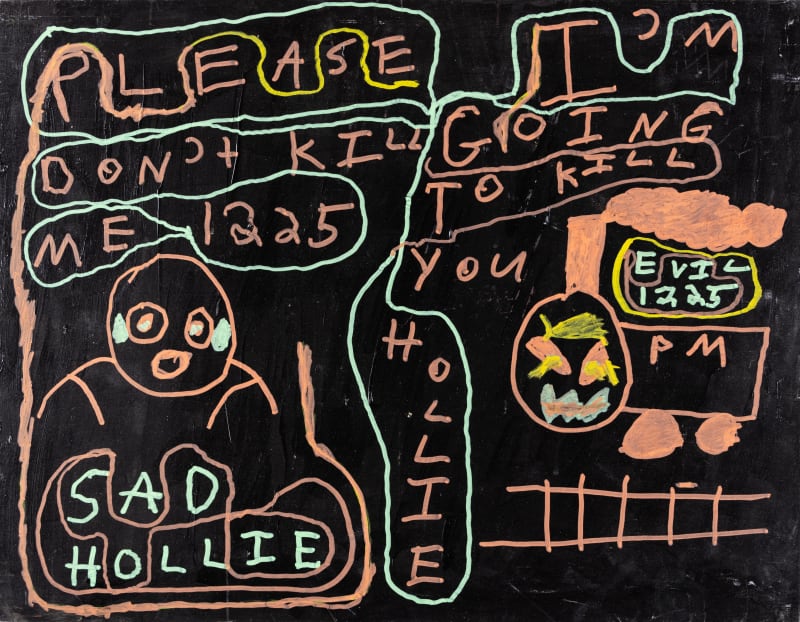 PLEASE
DON'T KILL
ME 1225
I'M
GOING
TO KILL
YOU
HOLLIE
EVIL
1225
PM
SAD
HOLLIE